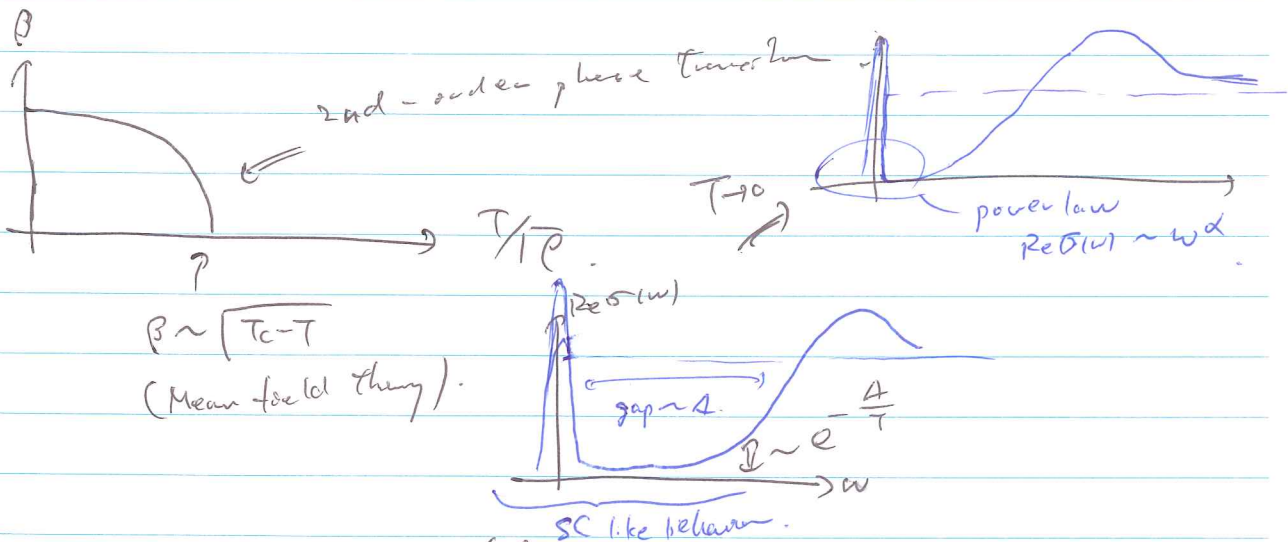 β
2nd-order phase transition
T/√ρ
β ~ √Tc-T
(Mean field theory).
T→0
power law
Re σ(ω) ~ ω^α
Re σ(ω)
gap ~ Δ
~ e^{-Δ/T}
ω
SC like behavior.